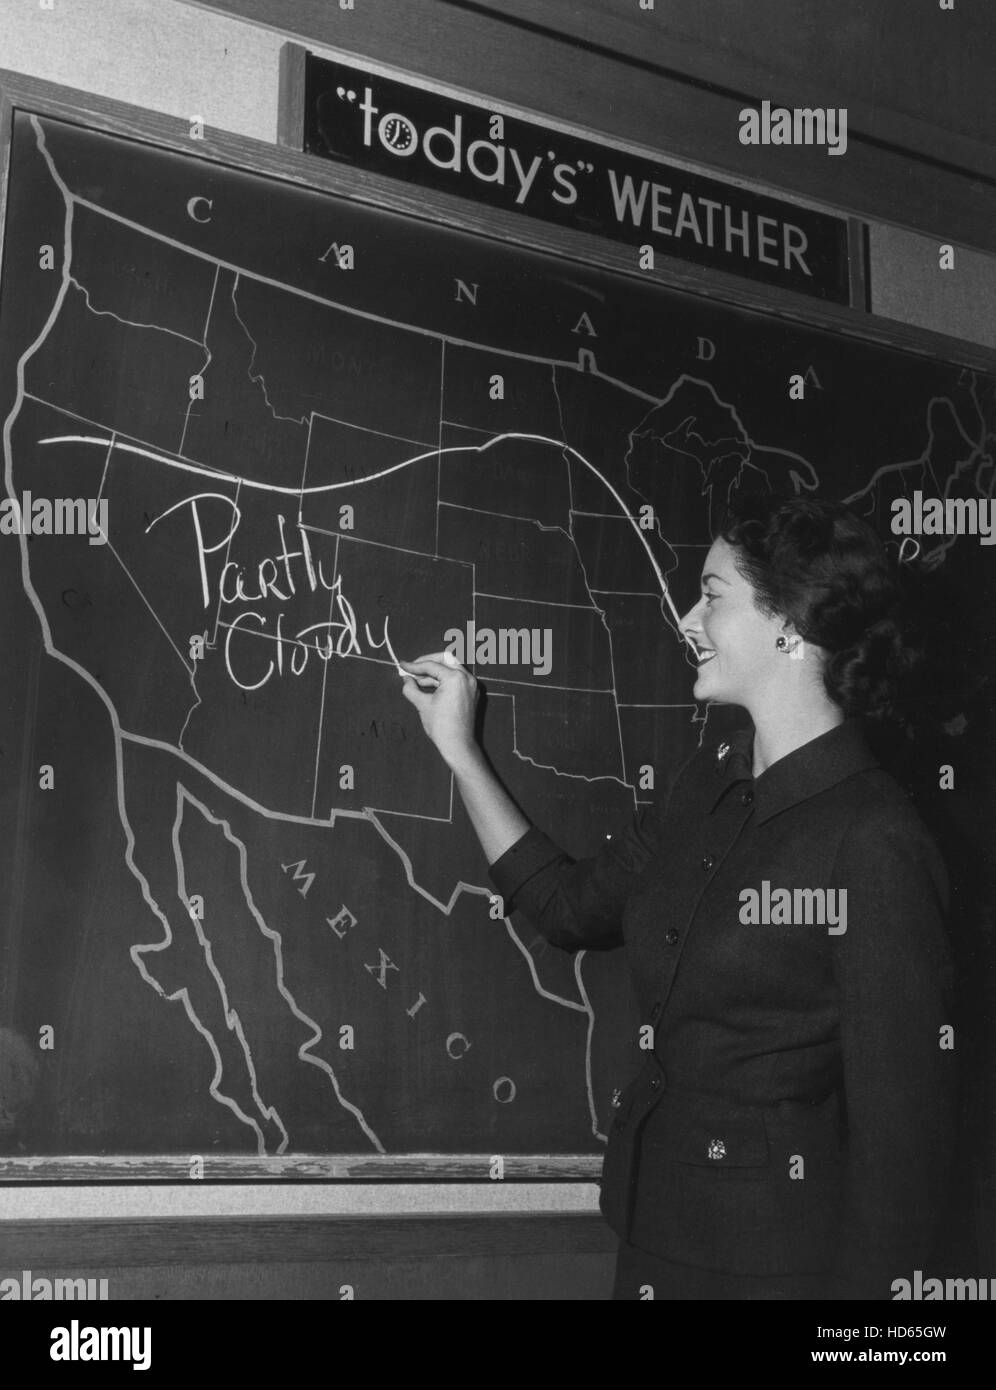 "today's" WEATHER
CANADA
MONT
Partly
Cloudy
MEXICO
alamy stock photo
alamy
HD65GW
www.alamy.com